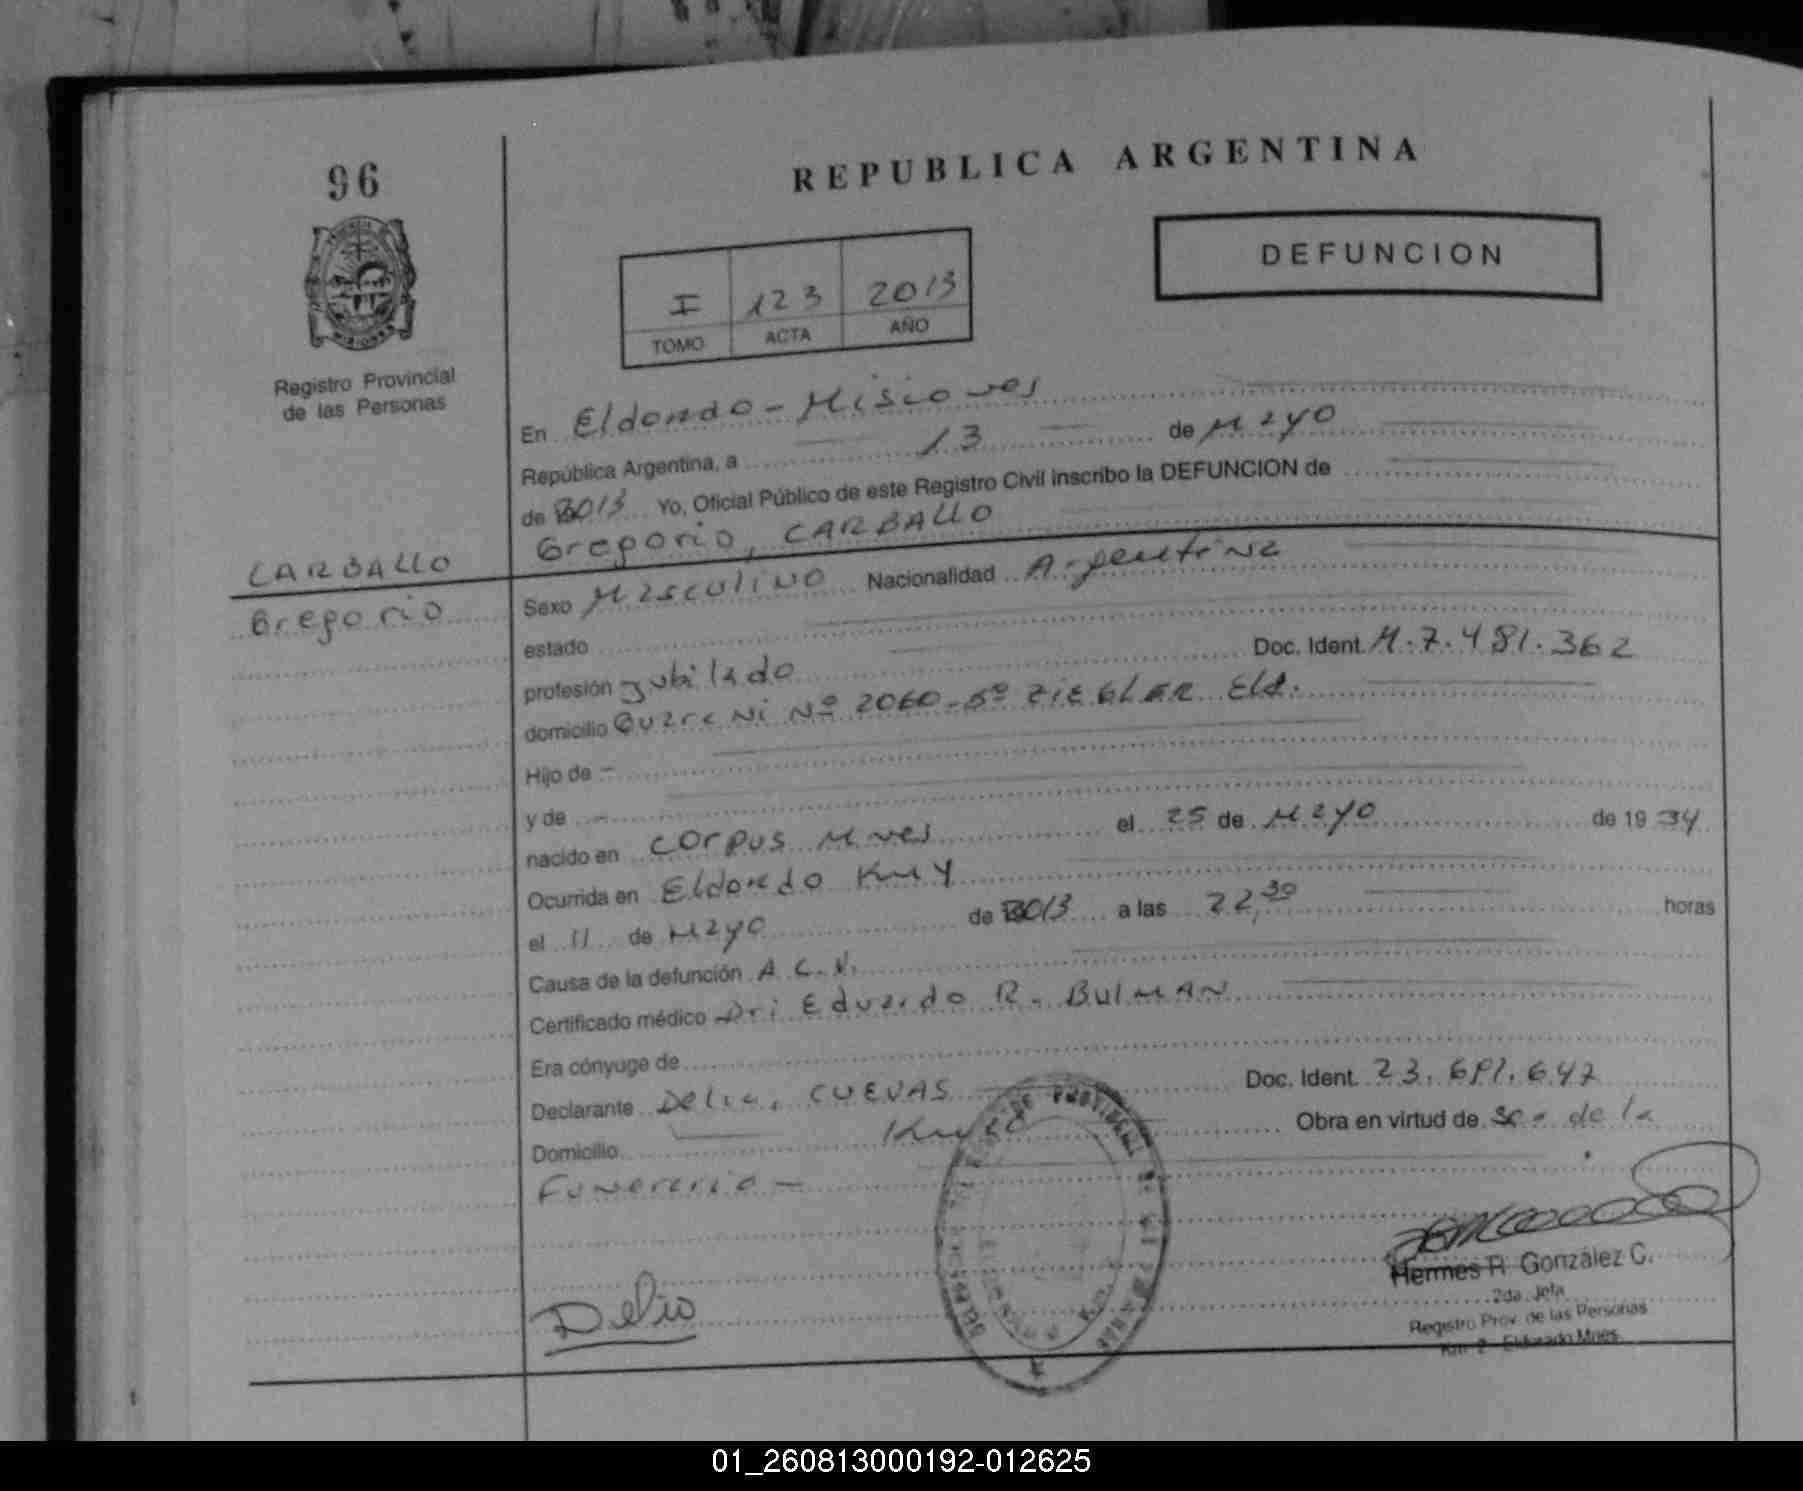 96
REPUBLICA ARGENTINA
DEFUNCION
I 123 2013
TOMO ACTA AÑO
Registro Provincial
de las Personas
En Eldorado - Misiones
República Argentina, a 13 de Mayo
de 2013 Yo, Oficial Público de este Registro Civil inscribo la DEFUNCION de
Gregorio, CARBALLO
CARBALLO
Gregorio
Sexo Masculino Nacionalidad Argentina
estado
profesión Jubilado Doc. Ident. M.7.481.362
domicilio Guarani Nº 2060 - Bº ZIEGLER Eld.
Hijo de -
y de -
nacido en Corpus Mnes el 25 de Mayo de 1934
Ocurrida en Eldorado Km 4
el 11 de Mayo de 2013 a las 22,30 horas
Causa de la defunción A.C.V.
Certificado médico Dr: Eduardo R. BulMAN
Era cónyuge de
Declarante Delio, CUEVAS Doc. Ident. 23.691.642
Domicilio Obra en virtud de de la
Funeraria -
Delio
Hermes R. González C.
2da. Jefa
Registro Prov. de las Personas
Km. 2 - Eldorado Mnes.
01_260813000192-012625